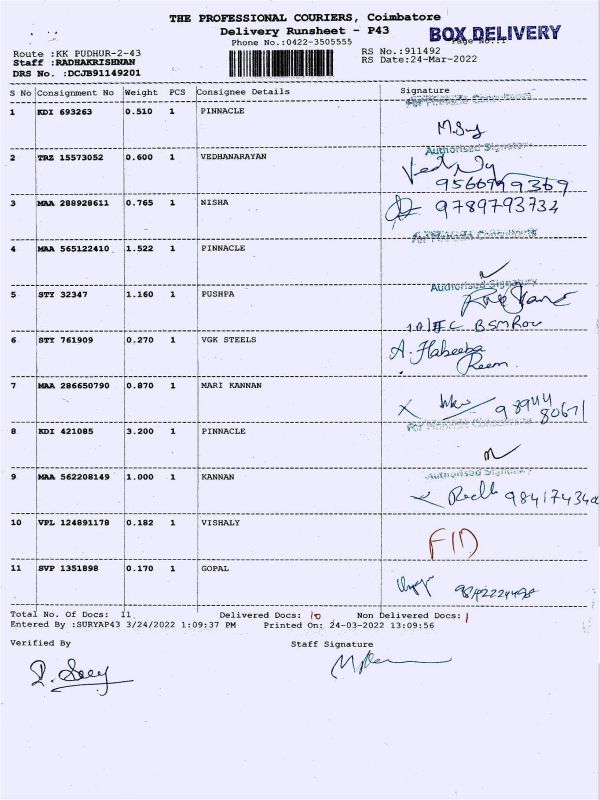 THE PROFESSIONAL COURIERS, Coimbatore
Delivery Runsheet - P43
BOX DELIVERY
Phone No.:0422-3505555
Route :KK PUDHUR-2-43
RS No.:911492
Staff :RADHAKRISHNAN
RS Date:24-Mar-2022
DRS No. :DCJB91149201
S No Consignment No Weight PCS Consignee Details Signature
1 KDI 693263 0.510 1 PINNACLE
Authorised Signatory
2 TRZ 15573052 0.600 1 VEDHANARAYAN
3 MAA 288928611 0.765 1 NISHA 9789793734
4 MAA 565122410 1.522 1 PINNACLE
Authorised Signatory
5 STY 32347 1.160 1 PUSHPA
6 STY 761909 0.270 1 VGK STEELS A. Habeeba
Reem
7 MAA 286650790 0.870 1 MARI KANNAN 98944
80671
8 KDI 421085 3.200 1 PINNACLE
Authorised Signatory
9 MAA 562208149 1.000 1 KANNAN
10 VPL 124891178 0.182 1 VISHALY
11 SVP 1351898 0.170 1 GOPAL
Total No. Of Docs: 11 Delivered Docs: 10 Non Delivered Docs: 1
Entered By :SURYAP43 3/24/2022 1:09:37 PM Printed On: 24-03-2022 13:09:56
Verified By Staff Signature